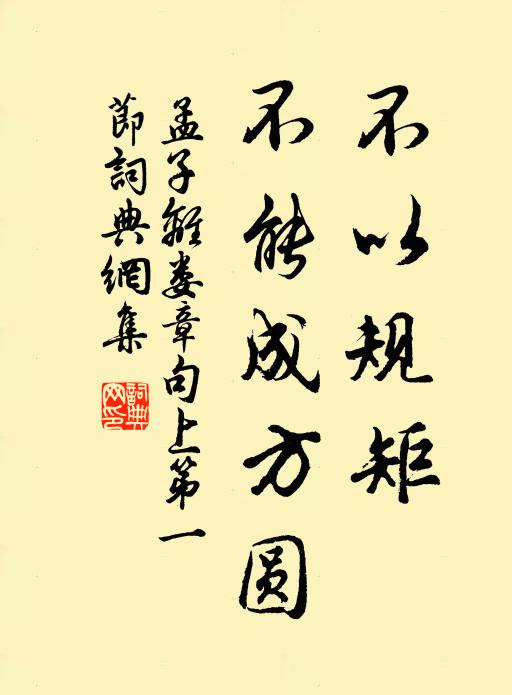 不以規矩
不能成方圓
孟子離娄章句上第一
節詞典網集
詞典
网印